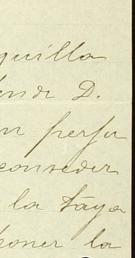 quilla
ende D.
n perju
conseder
la taya
poner la